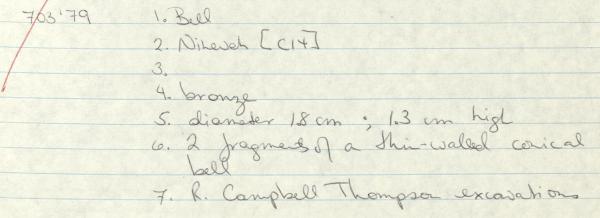 703'79 1. Bell
2. Nineveh [C14]
3.
4. bronze
5. diameter 1.8 cm ; 1.3 cm high
6. 2 fragments of a thin-walled conical
bell
7. R. Campbell Thompson excavations